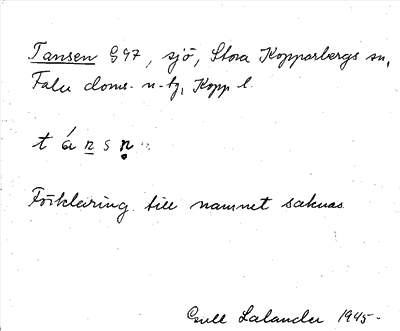 Tansen G97, sjö, Stora Kopparbergs sn,
Falu doms. n-tg, Kopp l.
t á n s n
Förklaring till namnet saknas.
Lalander 1945-